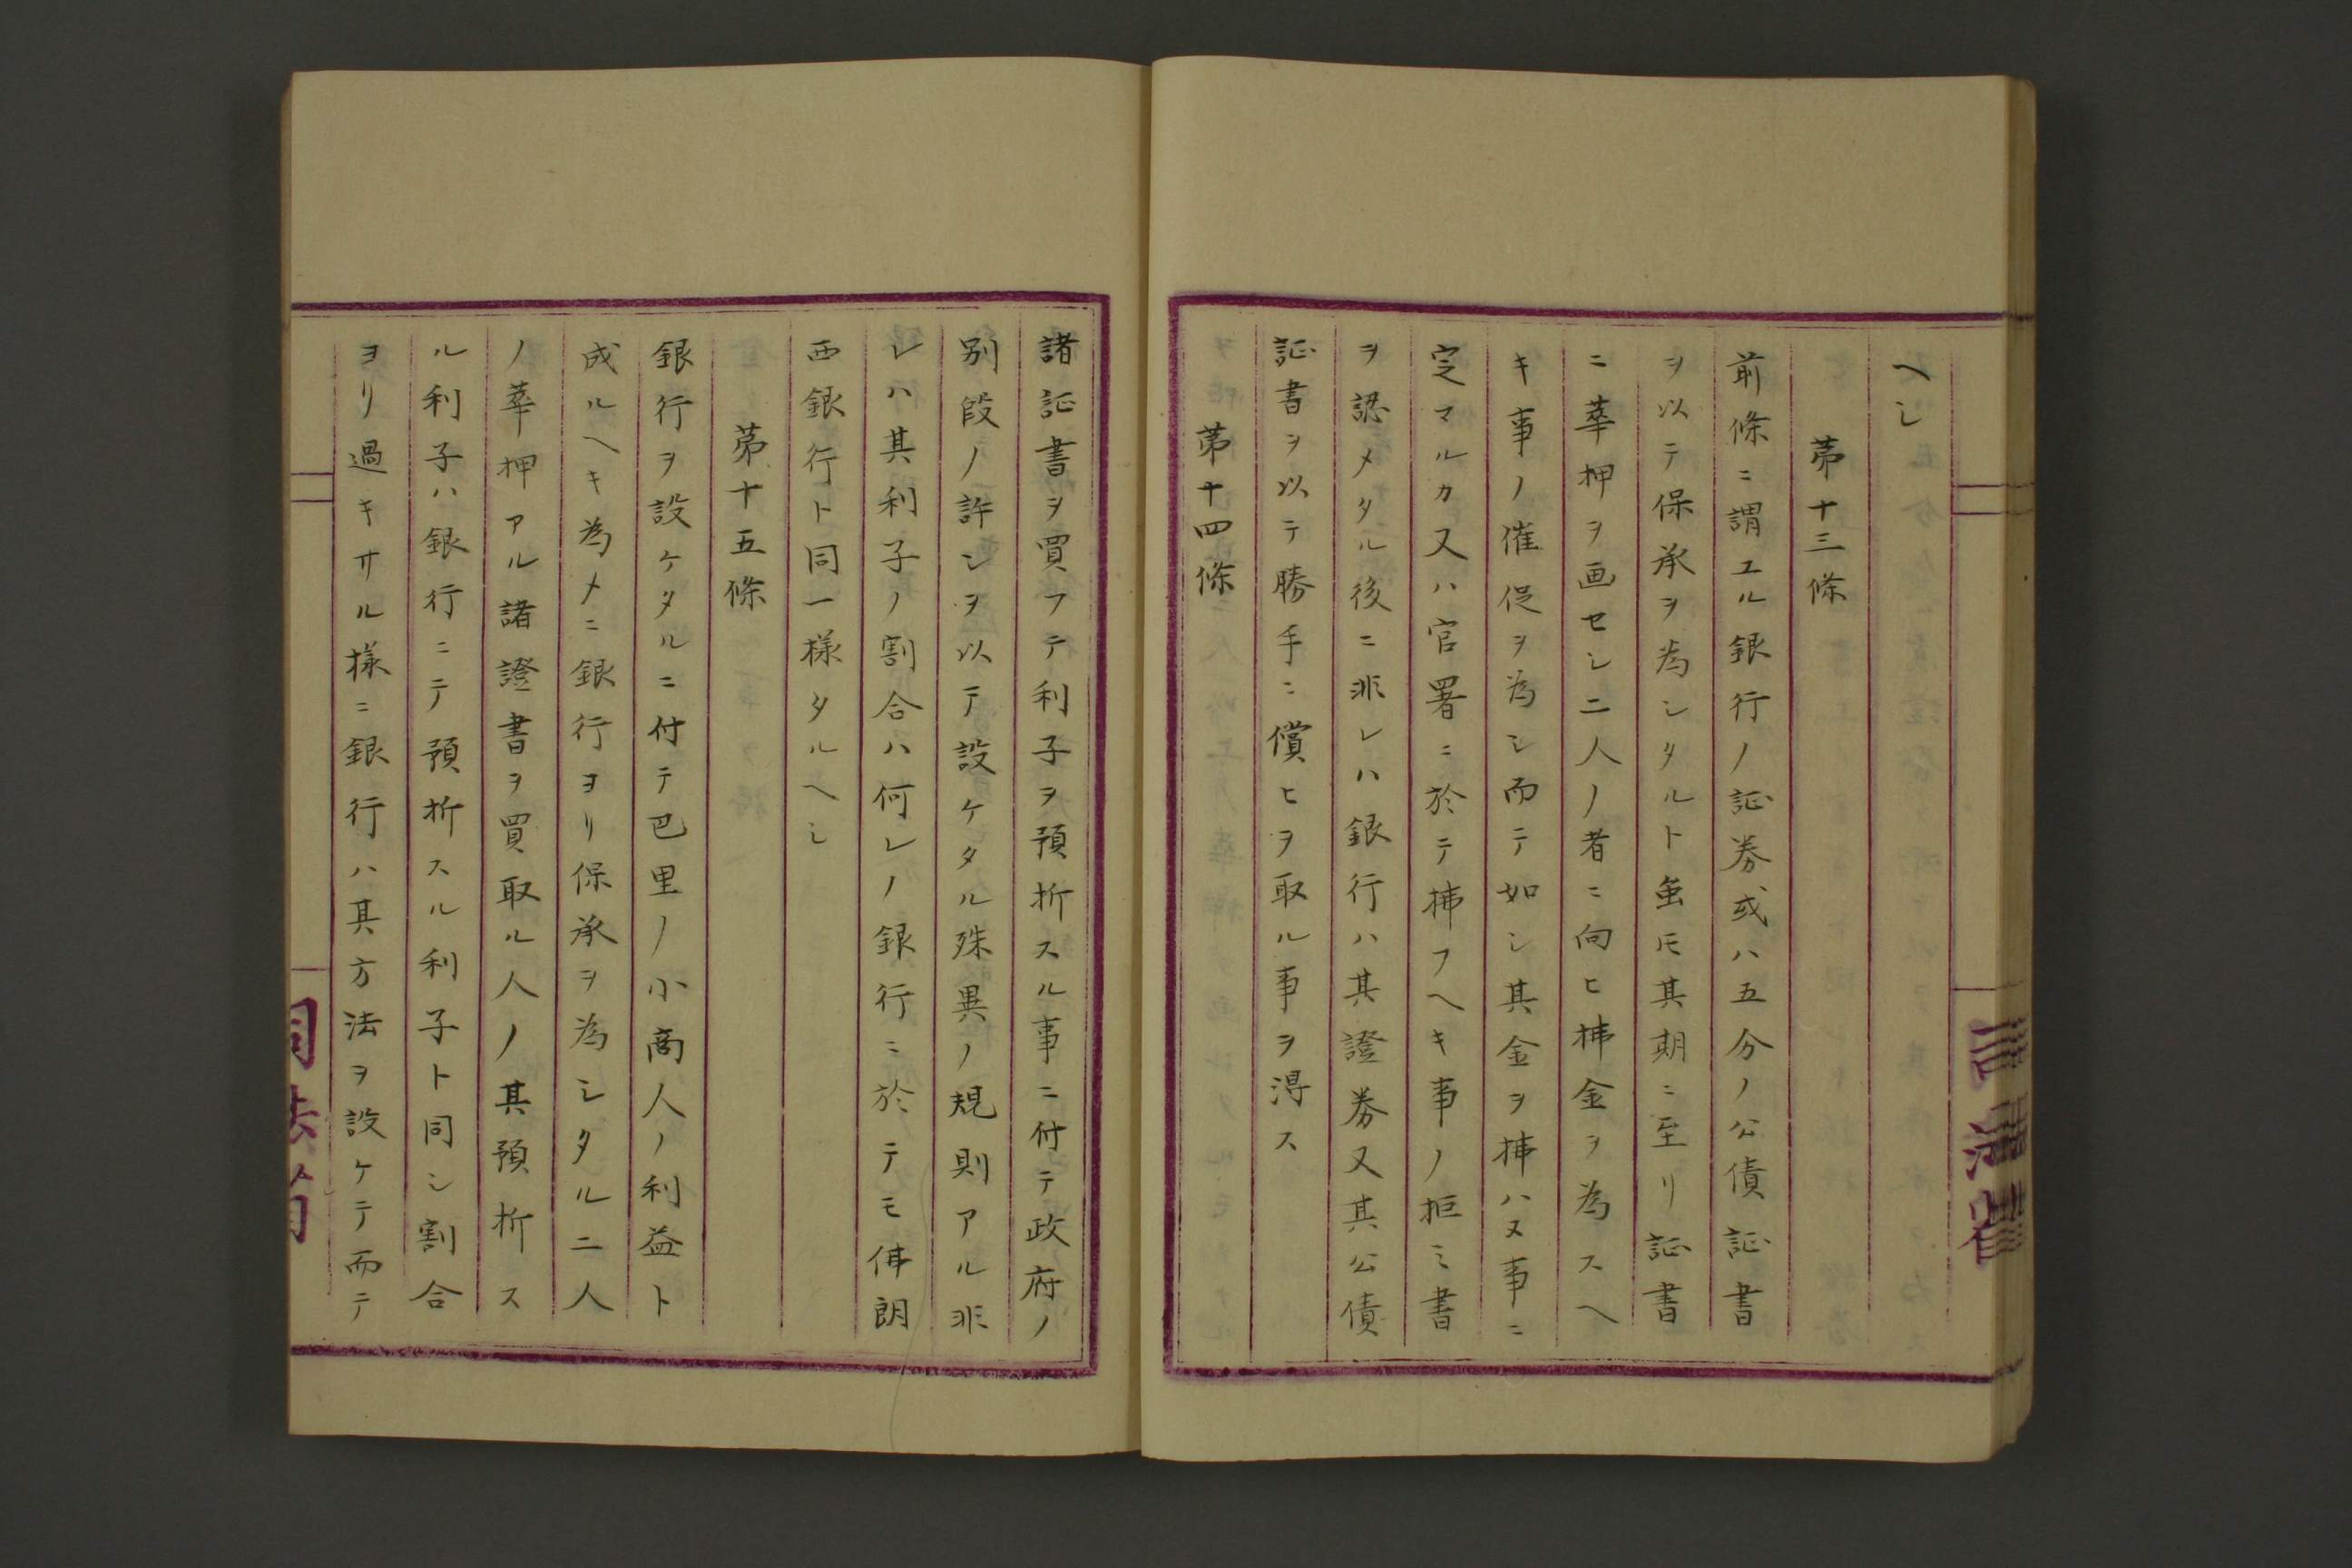 ヘシ
第十三條
前條ニ謂エル銀行ノ証券或ハ五分ノ公債証書
ヲ以テ保承ヲ為シタルト虽𪜈其期ニ至リ証書
ニ華押ヲ画セシ二人ノ者ニ向ヒ拂金ヲ為スヘ
キ事ノ催促ヲ為シ而テ如シ其金ヲ拂ハヌ事ニ
定マルカ又ハ官署ニ於テ拂フヘキ事ノ拒ミ書
ヲ認メタル後ニ非レハ銀行ハ其證券又其公債
証書ヲ以テ勝手ニ償ヒヲ取ル事ヲ淂ス
第十四條
諸証書ヲ買フテ利子ヲ預折スル事ニ付テ政府ノ
別段ノ許シヲ以テ設ケタル殊異ノ規則アル非
レハ其利子ノ割合ハ何レノ銀行ニ於テモ佛朗
西銀行ト同一樣タルヘシ
第十五條
銀行ヲ設ケタルニ付テ巴里ノ小商人ノ利益ト
成ルヘキ為メニ銀行ヨリ保承ヲ為シタル二人
ノ華押アル諸證書ヲ買取ル人ノ其預折ス
ル利子ハ銀行ニテ預折スル利子ト同シ割合
ヨリ過キサル樣ニ銀行ハ其方法ヲ設ケテ而テ
司法省